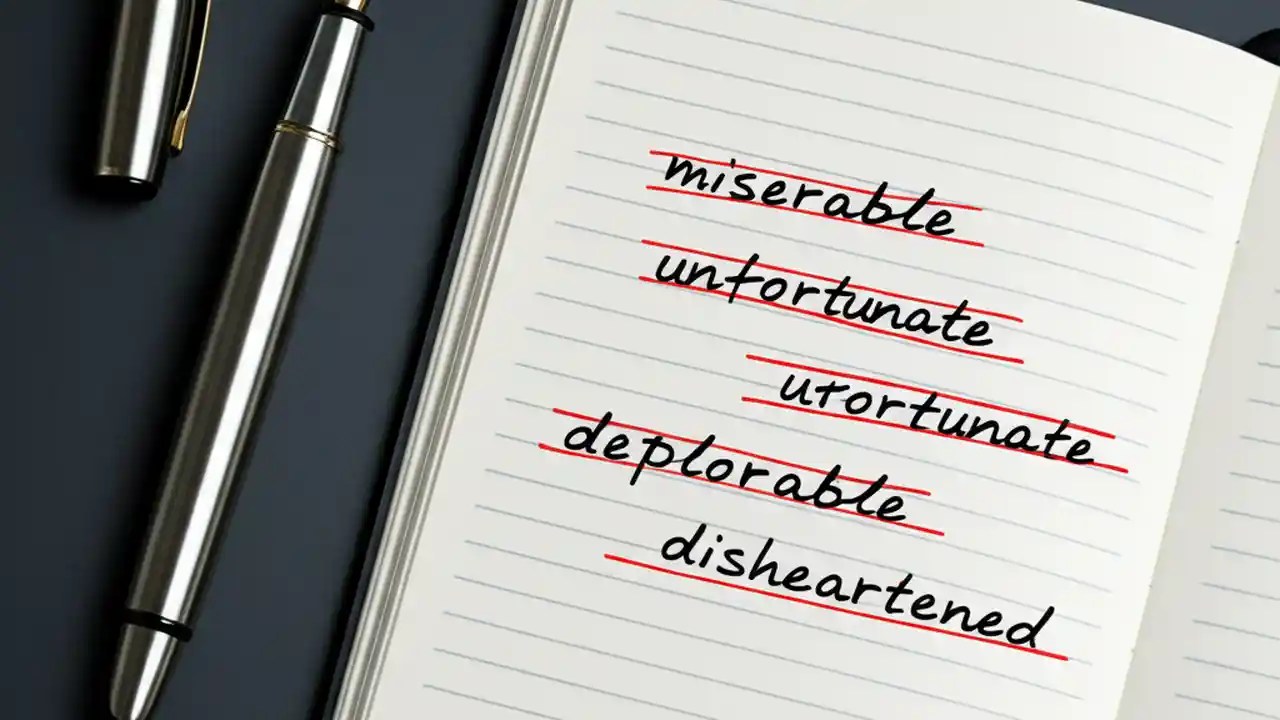 miserable
unfortunate
utortunate
deplorable
disheartened